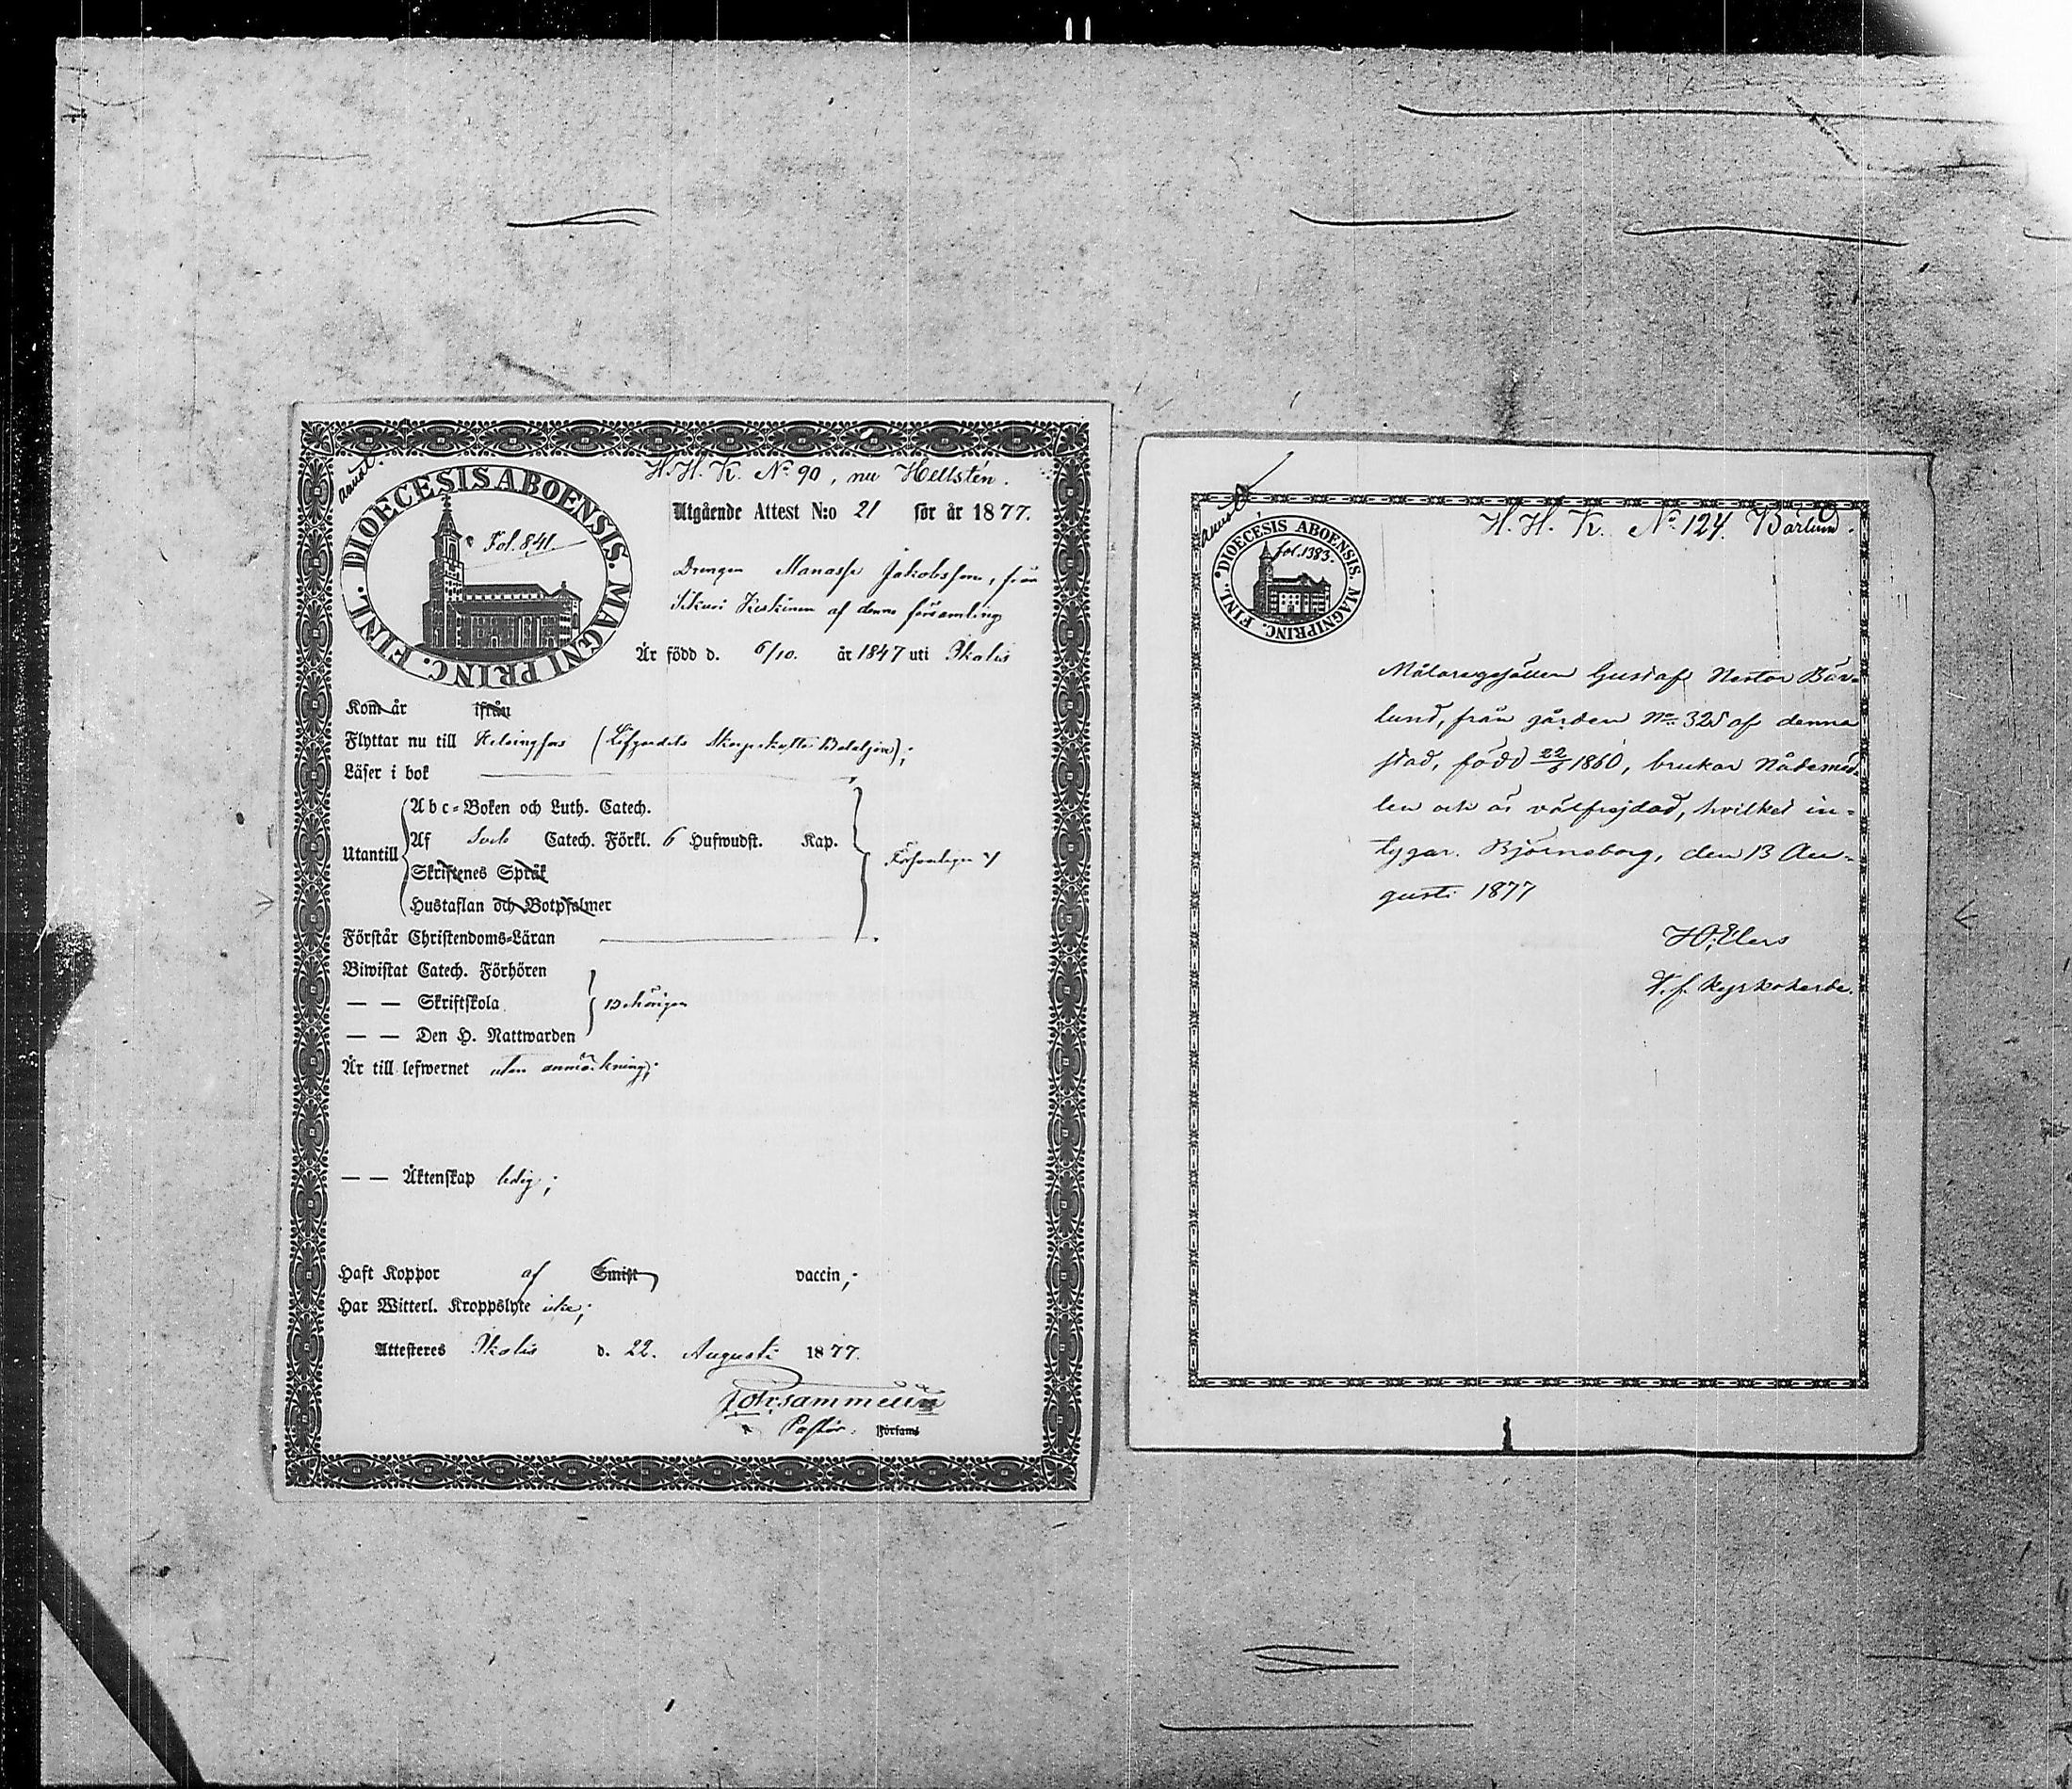 anmt.
H. H. K. No 90, nu Hellstén.
DIOECESIS ABOENSIS. MAGNI PRINC. FINL.
Fol. 841.
Utgående Attest N:o 21 för år 1877.
Drengen Manasse Jakobsson, från
Keskinen af denna församling
Är född d. 6/10. år 1847 uti Ikalis
Kom år ifrån
Flyttar nu till Helsingfors (Lifgardets Skarpskytte Bataljon);
Läser i bok
Abc-Boken och Luth. Catech.
Utantill Af Catech. Förkl. 6 Hufwudst. Kap.
Skriftenes Språk
Hustaflan och Botpsalmer
Förstår Christendoms-Läran
Biwistat Catech. Förhören
— — Skriftskola
Behörigen
— — Den H. Nattwarden
Är till lefwernet utan anmärkning;
— — Äktenskap ledig;
Haft Koppor af Smitt vaccin;
Har Witterl. Kroppslyte icke;
Attesteres Ikalis d. 22. Augusti 1877.
Pastor. Församl
anmt
H. H. K. No 124. Bärlund.
DIOECESIS ABOENSIS. MAGNI PRINC. FINL.
fol. 1383.
Målaregesällen Gustaf Nestor Bär-
lund, från gården No 325 af denna
stad, född 22/6 1860, brukar Nådemed-
len och är välfrejdad, hvilket in-
tygar. Björneborg, den 13 Au-
gusti 1877
V. f. Kyrkoherde.